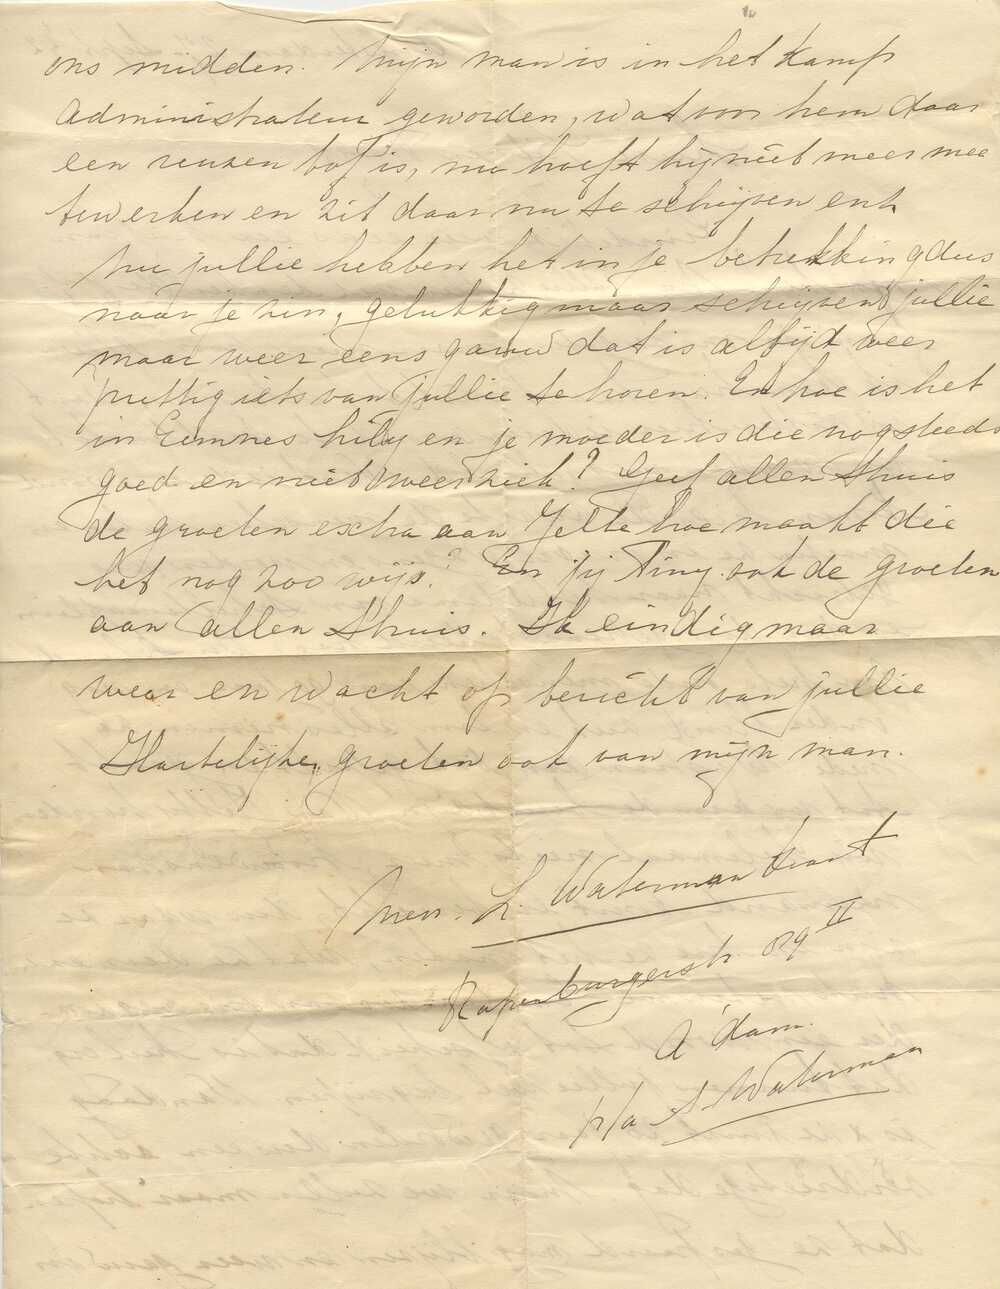 ons midden. Mijn man is in het kamp
Administrateur geworden, wat voor hem daar
een reuzen bof is, nu hoeft hij niet meer mee
te werken en zit daar nu te schrijven enz.
Nu jullie hebben het in je betrekking dus
naar je zin, gelukkig maar schrijven jullie
maar weer eens gauw dat is altijd weer
prettig iets van jullie te horen. En hoe is het
in Eemnes hilly en je moeder is die nog steeds
goed en niet weer ziek? Geef allen thuis
de groeten extra aan Jelte hoe maakt die
het nog zoo wijs? En jij Tiny ook de groeten
aan allen thuis. Ik eindig maar
weer en wacht op bericht van jullie
Hartelijke groeten ook van mijn man.
Mevr. L. Waterman Krant
Rapenburgerstr. 89 II
A'dam.
p/a S Waterman